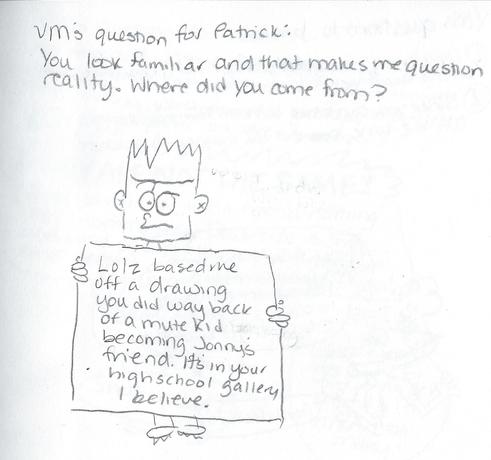 VM's question for Patrick:
You look familiar and that makes me question
reality. Where did you come from?
Lolz based me
off a drawing
you did way back
of a mute kid
becoming Jonny's
friend. It's in your
highschool gallery
I believe.